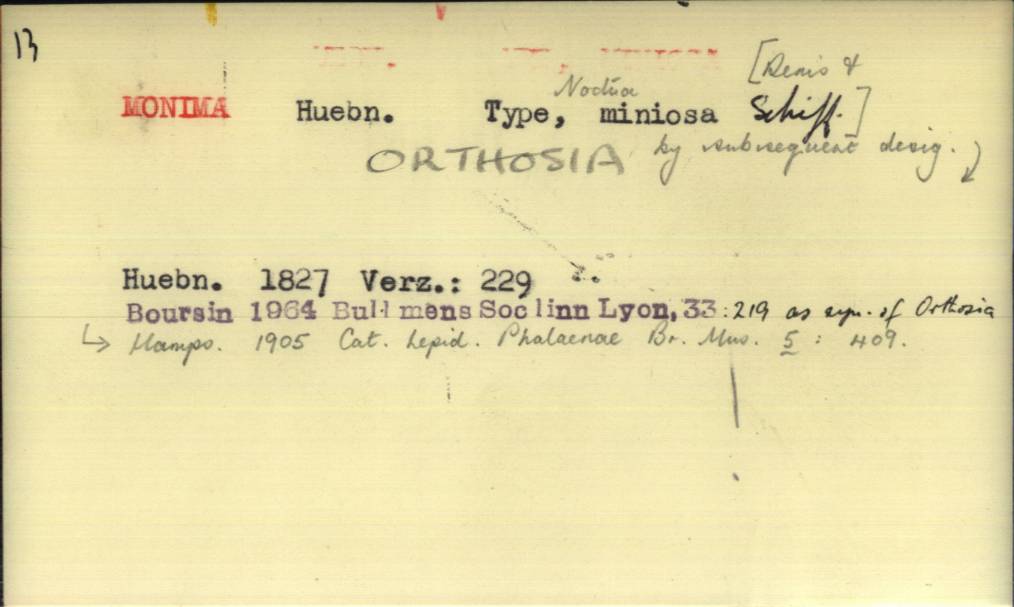 13
[Denis &
MONIMA Huebn. Type, Noctua miniosa Schiff.]
ORTHOSIA by subsequent desig.
Huebn. 1827 Verz.: 229
Boursin 1964 Bull mens Soc linn Lyon, 33 : 219 as syn. of Orthosia
↳ Hamps. 1905 Cat. Lepid. Phalaenae Br. Mus. 5 : 409.